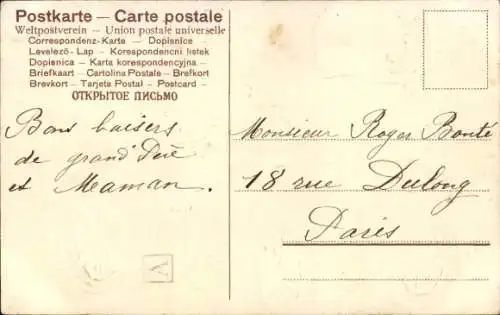 Postkarte — Carte postale
Weltpostverein — Union postale universelle
Correspondenz-Karte — Dopisnice
Levelező-Lap — Korespondencni listek
Dopisnica — Karta korespondencyjna —
Briefkaart — Cartolina Postale — Brefkort
Brevkort — Tarjeta Postal — Postcard —
ОТКРЫТОЕ ПИСЬМО
Bons baisers
de grand'Père
et Maman.
Monsieur Roger Bonté
18 rue Dulong
Paris
A